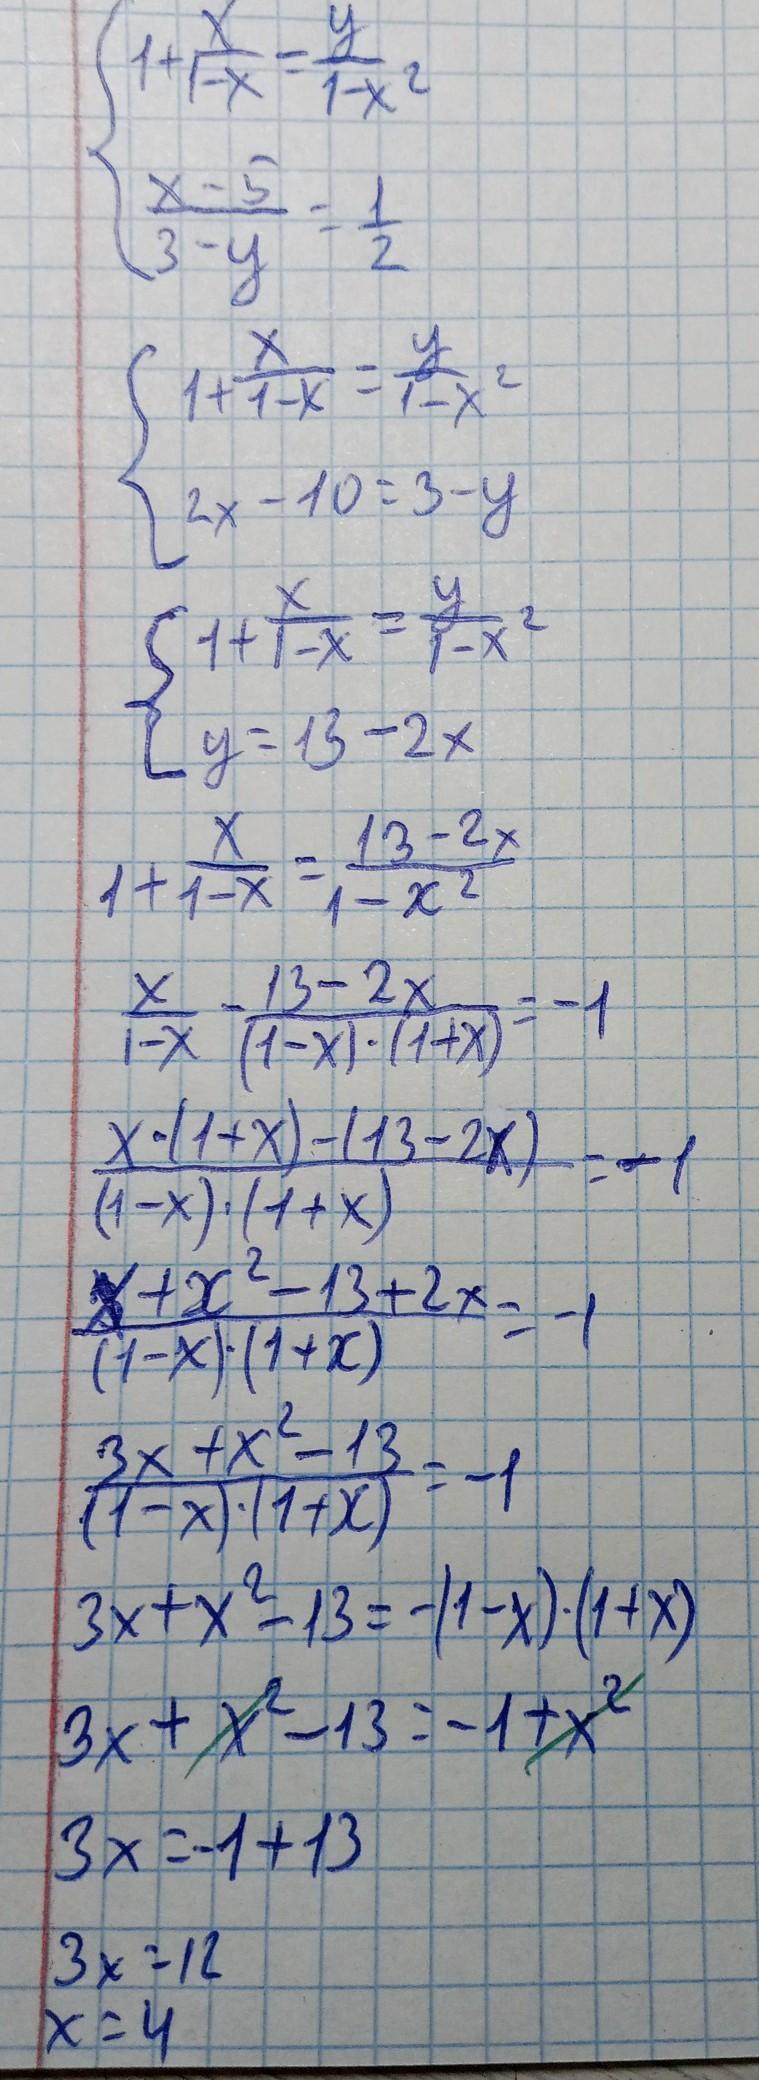 1+x/(1-x)=y/(1-x²)
(x-5)/(3-y)=1/2
1+x/(1-x)=y/(1-x²)
2x-10=3-y
1+x/(1-x)=y/(1-x²)
y=13-2x
1+x/(1-x)=(13-2x)/(1-x²)
x/(1-x)-(13-2x)/((1-x)·(1+x))=-1
(x·(1+x)-(13-2x))/((1-x)·(1+x))=-1
(x+x²-13+2x)/((1-x)·(1+x))=-1
(3x+x²-13)/((1-x)·(1+x))=-1
3x+x²-13=-(1-x)·(1+x)
3x+x²-13=-1+x²
3x=-1+13
3x=12
x=4